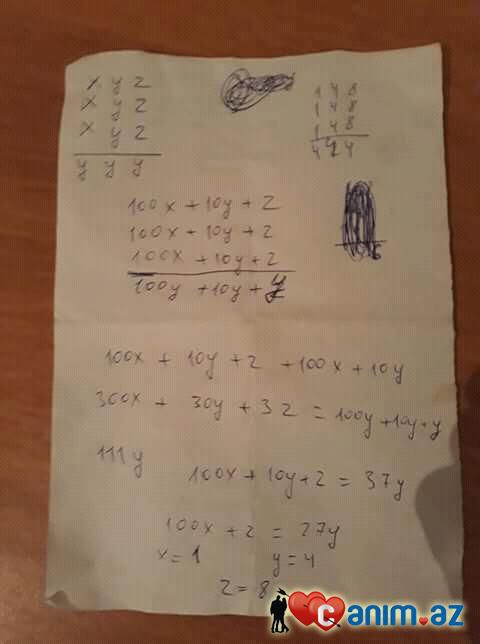 x y z
x y z
x y z
y y y
148
148
148
444
100x + 10y + z
100x + 10y + z
100x + 10y + z
100y + 10y + y
6
100x + 10y + z + 100x + 10y
300x + 30y + 3z = 100y + 10y + y
111y
100x + 10y + z = 37y
100x + z = 27y
x = 1 y = 4
z = 8
Canim.az